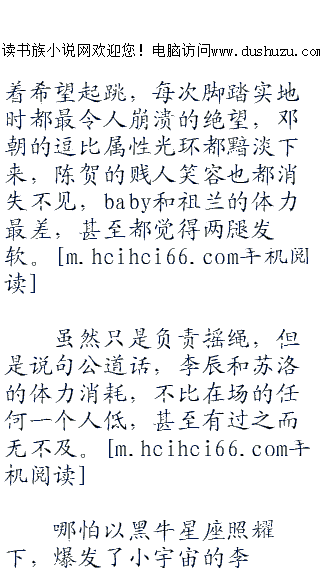 读书族小说网欢迎您！电脑访问www.dushuzu.com
着希望起跳，每次脚踏实地
时都最令人崩溃的绝望，邓
朝的逗比属性光环都黯淡下
来，陈贺的贱人笑容也都消
失不见，baby和祖兰的体力
最差，甚至都觉得两腿发
软。[m.hcihci66.com手机阅
读]
虽然只是负责摇绳，但
是说句公道话，李辰和苏洛
的体力消耗，不比在场的任
何一个人低，甚至有过之而
无不及。[m.hcihci66.com手
机阅读]
哪怕以黑牛星座照耀
下，爆发了小宇宙的李